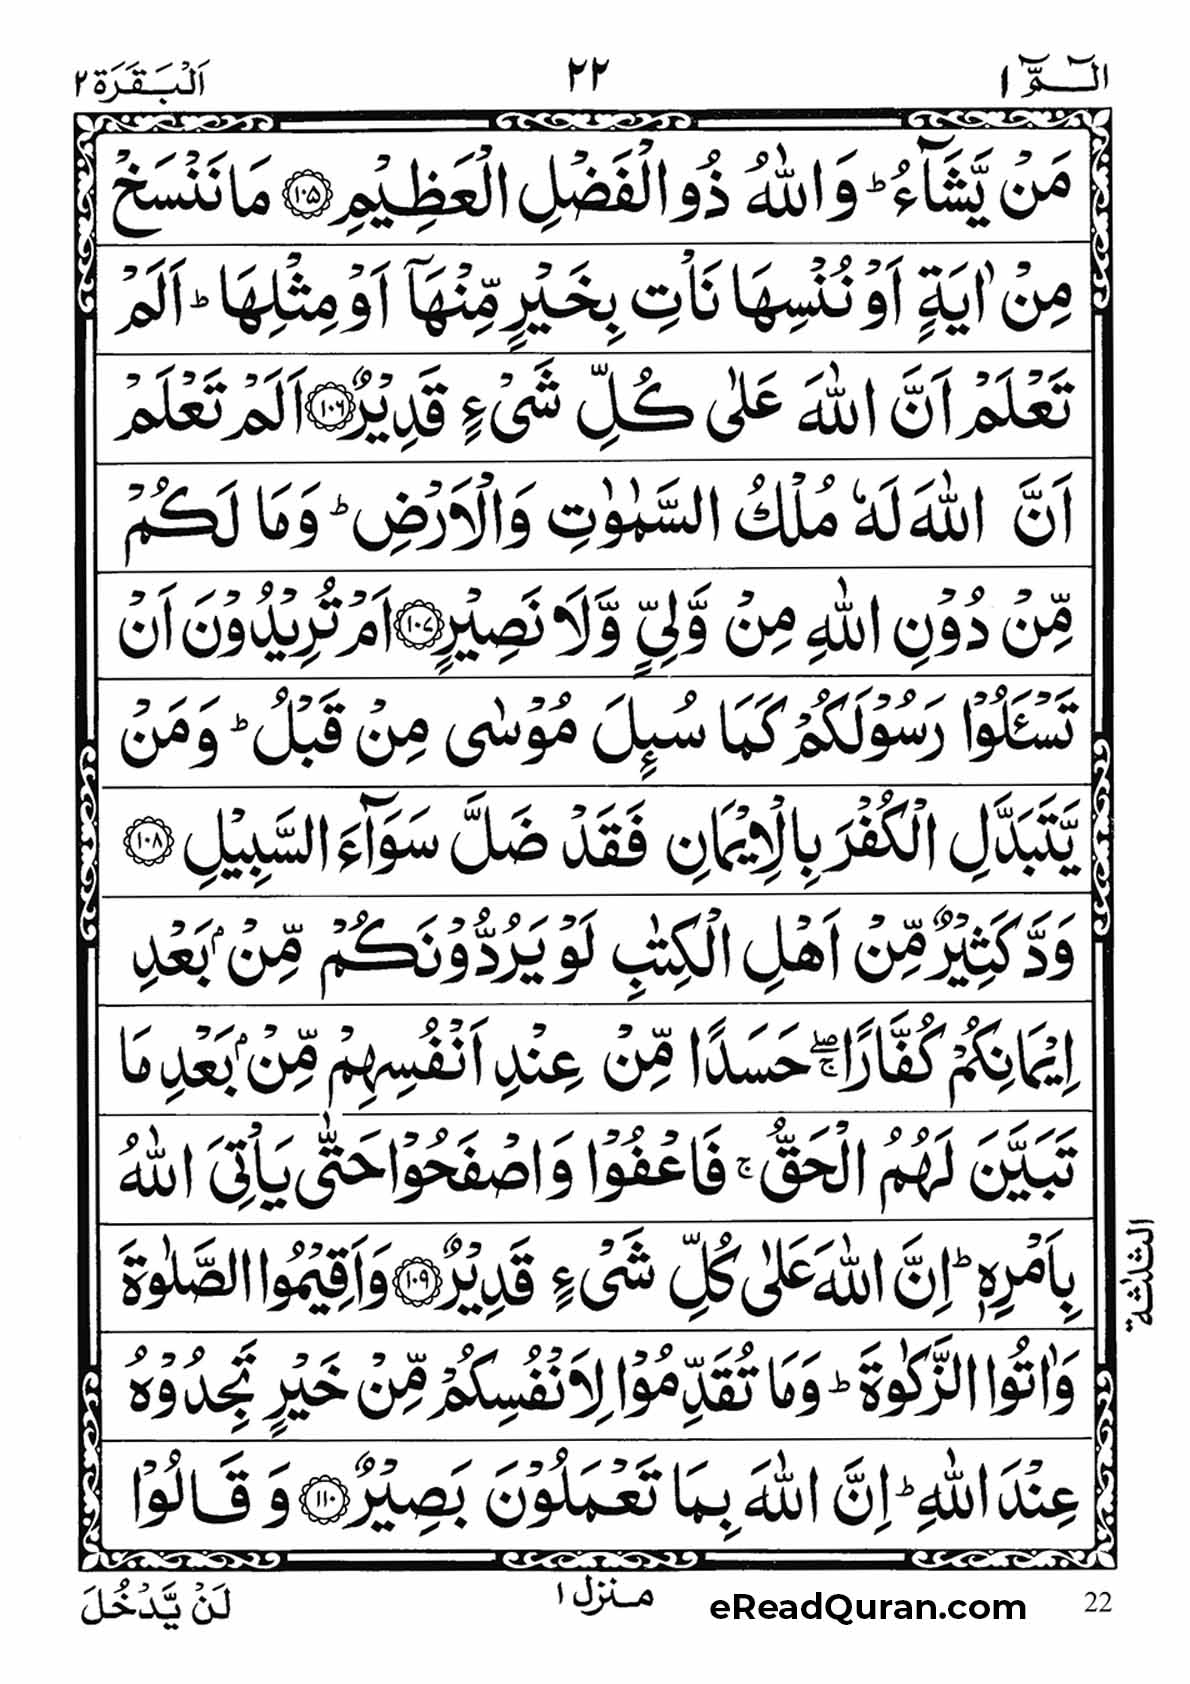 الٓمّٓ ١ ٢٢ اَلْبَقَرَة ٢
مَنْ يَّشَآءُ ؕ وَاللّٰهُ ذُو الْفَضْلِ الْعَظِيْمِ ۝١٠٥ مَا نَنْسَخْ
مِنْ اٰيَةٍ اَوْ نُنْسِهَا نَاْتِ بِخَيْرٍ مِّنْهَآ اَوْ مِثْلِهَا ؕ اَلَمْ
تَعْلَمْ اَنَّ اللّٰهَ عَلٰى كُلِّ شَيْءٍ قَدِيْرٌ ۝١٠٦ اَلَمْ تَعْلَمْ
اَنَّ اللّٰهَ لَهٗ مُلْكُ السَّمٰوٰتِ وَالْاَرْضِ ؕ وَمَا لَكُمْ
مِّنْ دُوْنِ اللّٰهِ مِنْ وَّلِيٍّ وَّلَا نَصِيْرٍ ۝١٠٧ اَمْ تُرِيْدُوْنَ اَنْ
تَسْـَٔلُوْا رَسُوْلَكُمْ كَمَا سُىِٕلَ مُوْسٰى مِنْ قَبْلُ ؕ وَمَنْ
يَّتَبَدَّلِ الْكُفْرَ بِالْاِيْمَانِ فَقَدْ ضَلَّ سَوَآءَ السَّبِيْلِ ۝١٠٨
وَدَّ كَثِيْرٌ مِّنْ اَهْلِ الْكِتٰبِ لَوْ يَرُدُّوْنَكُمْ مِّنْۢ بَعْدِ
اِيْمَانِكُمْ كُفَّارًا ۖۚ حَسَدًا مِّنْ عِنْدِ اَنْفُسِهِمْ مِّنْۢ بَعْدِ مَا
تَبَيَّنَ لَهُمُ الْحَقُّ ۚ فَاعْفُوْا وَاصْفَحُوْا حَتّٰى يَاْتِيَ اللّٰهُ
بِاَمْرِهٖ ؕ اِنَّ اللّٰهَ عَلٰى كُلِّ شَيْءٍ قَدِيْرٌ ۝١٠٩ وَاَقِيْمُوا الصَّلٰوةَ
الثلٰثة
وَاٰتُوا الزَّكٰوةَ ؕ وَمَا تُقَدِّمُوْا لِاَنْفُسِكُمْ مِّنْ خَيْرٍ تَجِدُوْهُ
عِنْدَ اللّٰهِ ؕ اِنَّ اللّٰهَ بِمَا تَعْمَلُوْنَ بَصِيْرٌ ۝١١٠ وَقَالُوْا
لَنْ يَّدْخُلَ منزل ١ eReadQuran.com 22